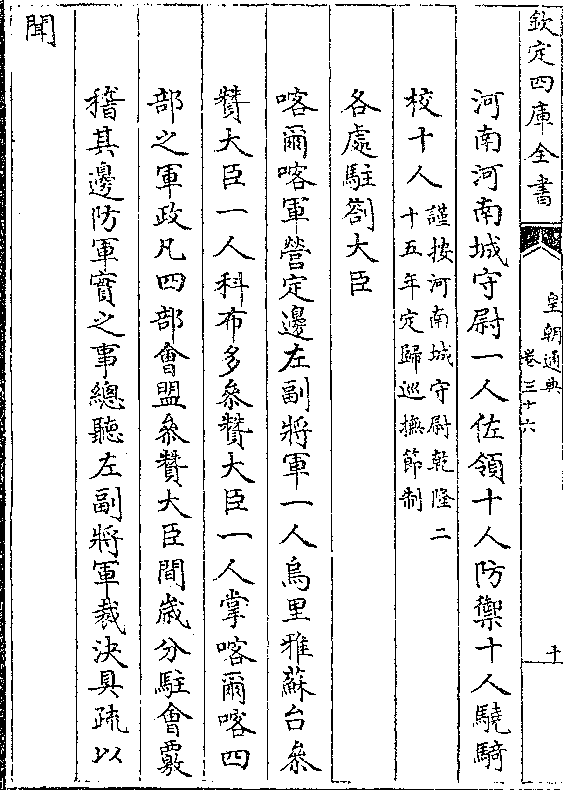 欽定四庫全書
皇朝通典
卷三十六
十
河南河南城守尉一人佐領十人防禦十人驍騎
校十人
謹按河南城守尉乾隆二
十五年定歸巡撫節制
各處駐劄大臣
喀爾喀軍營定邊左副將軍一人烏里雅蘇台叅
贊大臣一人科布多叅贊大臣一人掌喀爾喀四
部之軍政凡四部會盟叅贊大臣間歲分駐會覈
稽其邊防軍實之事總聽左副將軍裁決具疏以
聞